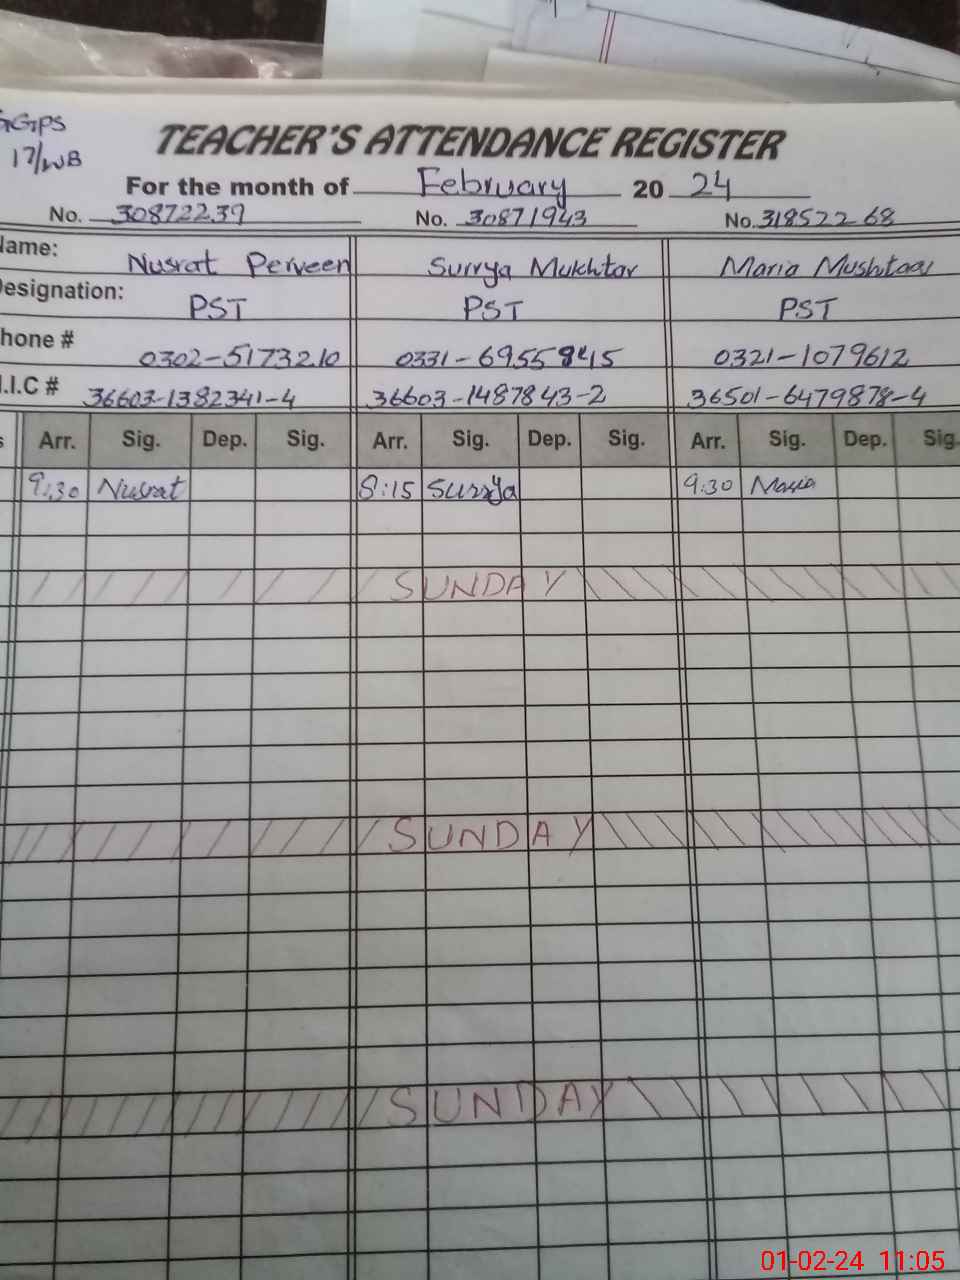 GGPS
17/WB
TEACHER'S ATTENDANCE REGISTER
For the month of February 20 24
No. 30872239 No. 30871943 No. 31852268
Name: Nusrat Perveen Surrya Mukhtar Maria Mushtaq
Designation: PST PST PST
hone # 0302-5173210 0331-6955845 0321-1079612
.I.C # 36603-1382341-4 36603-1487843-2 36501-6479878-4
s Arr. Sig. Dep. Sig. Arr. Sig. Dep. Sig. Arr. Sig. Dep. Sig.
9:30 Nusrat 8:15 Surrya 9:30 Maria
SUNDAY
SUNDAY
SUNDAY
01-02-24 11:05